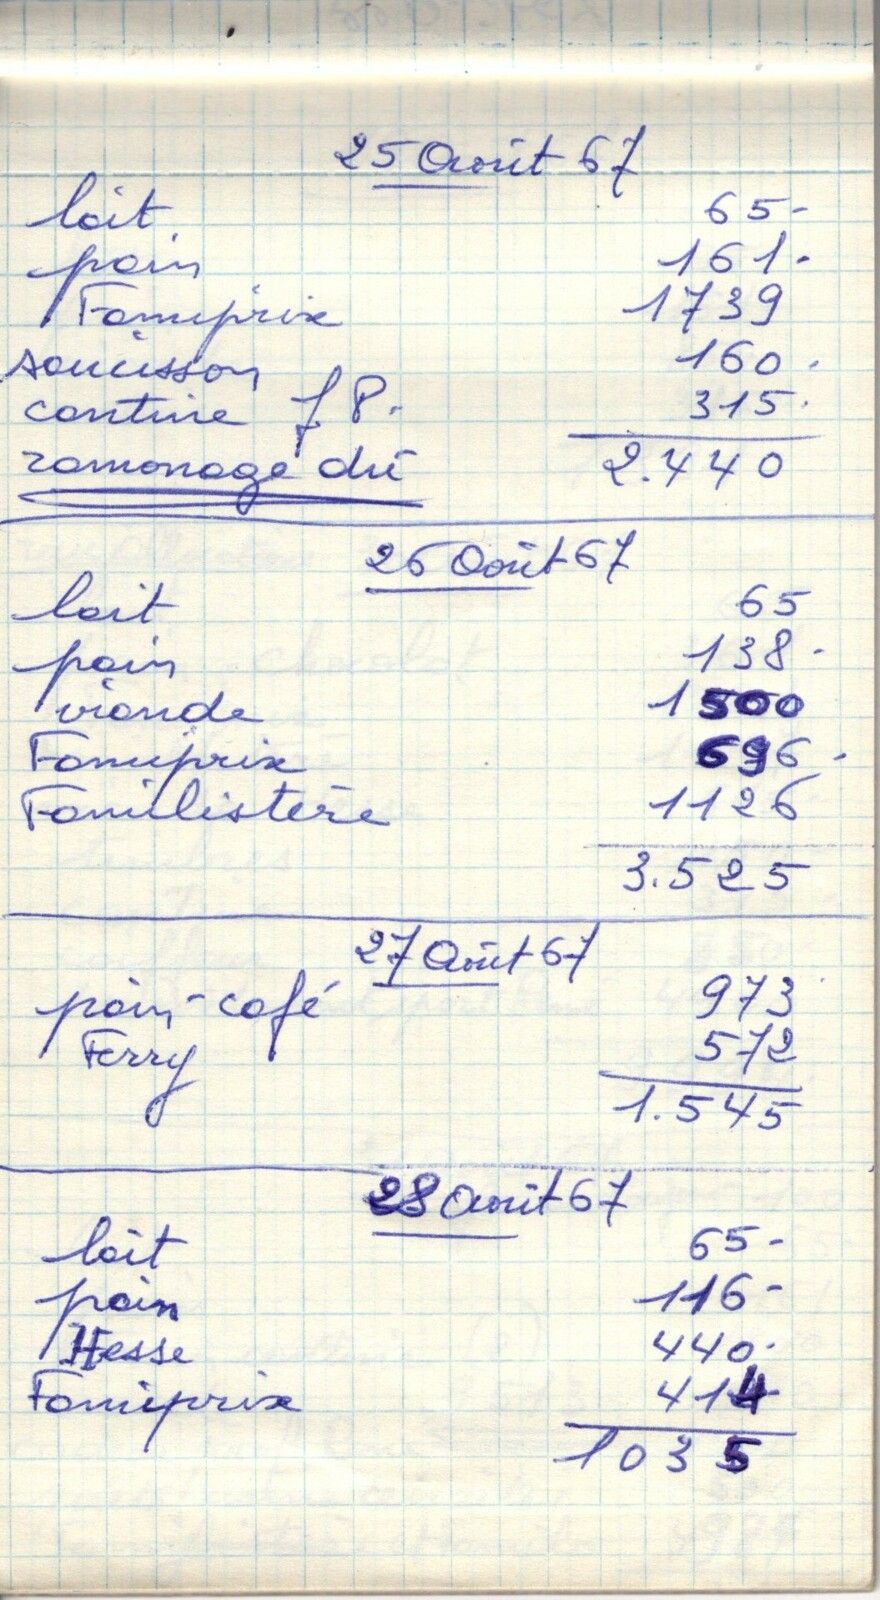 25 Août 67
lait 65-
pain 161.
Famiprix 1739
saucisson 160.
cantine J P. 315.
ramonage dû 2.440
26 Août 67
lait 65
pain 138.
viande 1500
Famiprix 696.
Familistère 1126
3.525
27 Août 67
pain-café 973
Ferry 572
1.545
28 Août 67
lait 65-
pain 116-
Hesse 440.
Famiprix 414
1035